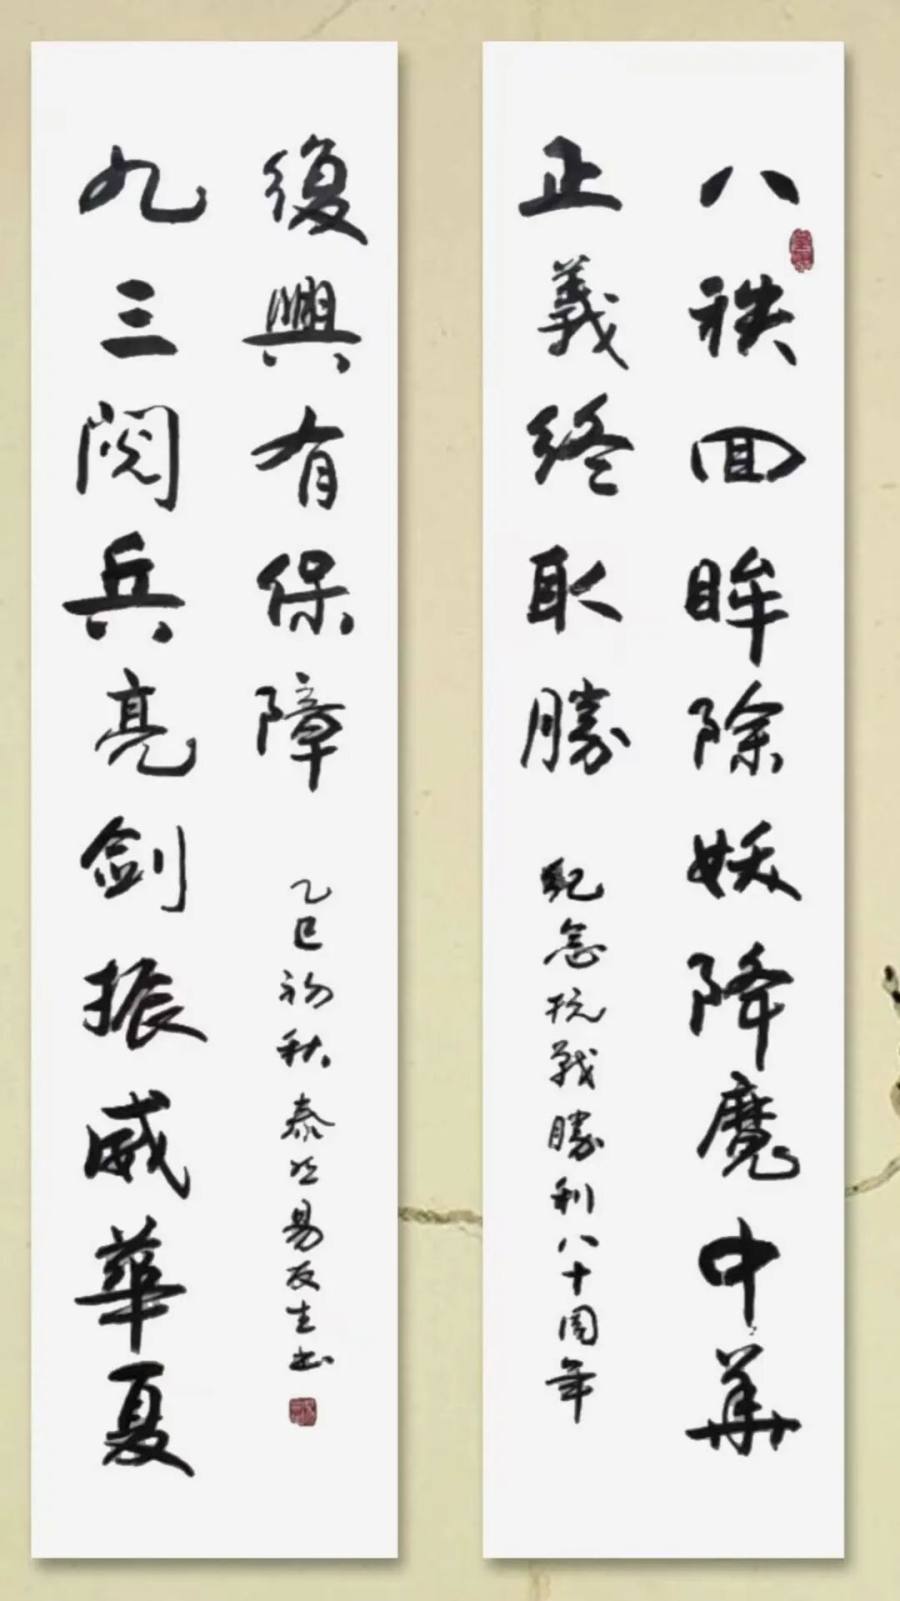 八秩回眸除妖降魔中華
正義終取勝
紀念抗戰勝利八十周年
九三閱兵亮劍振威華夏
復興有保障
乙巳初秋 泰 易友生书